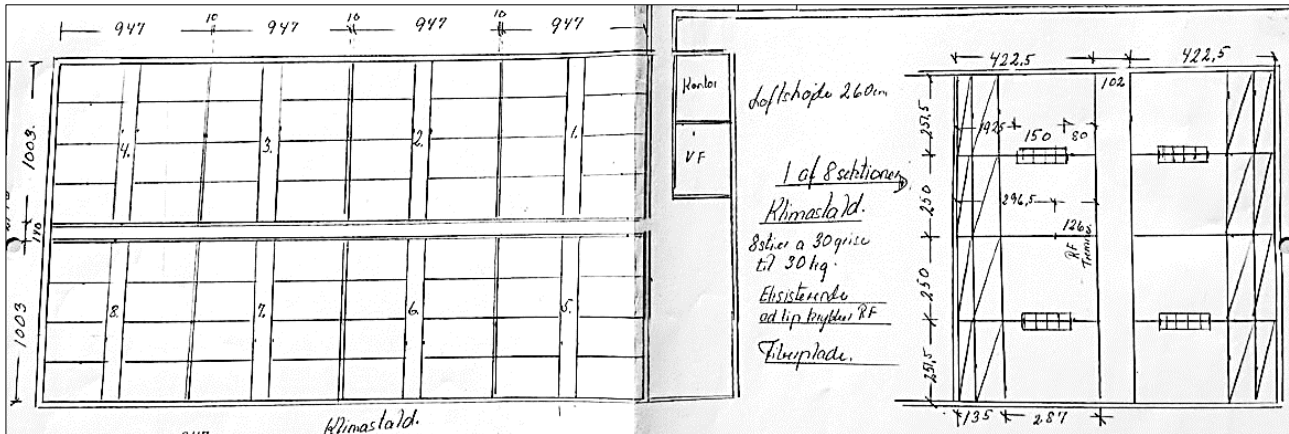 947 10 947 10 947 10 947
1003.
4. 3. 2. 1.
140
1003
8. 7. 6. 5.
Klimastald.
947
Kontor
VF
Loftshøjde 260cm
1 af 8 sektioner
Klimastald.
8 stier a 30 grise
til 30 kg.
Eksisterende
ad lip krybber RF
Fiberplade.
422,5 422,5
102
251,5
1925 150 80
250
296,5
126
RF
250
251,5
135 287